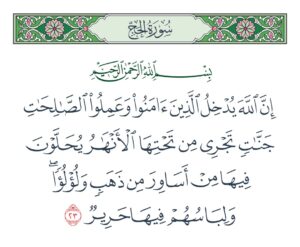 سُورَةُ الحَجِّ
بِسْمِ اللَّهِ الرَّحْمَٰنِ الرَّحِيمِ
إِنَّ ٱللَّهَ يُدْخِلُ ٱلَّذِينَ ءَامَنُوا۟ وَعَمِلُوا۟ ٱلصَّـٰلِحَـٰتِ
جَنَّـٰتٍ تَجْرِى مِن تَحْتِهَا ٱلْأَنْهَـٰرُ يُحَلَّوْنَ
فِيهَا مِنْ أَسَاوِرَ مِن ذَهَبٍ وَلُؤْلُؤًا ۖ
وَلِبَاسُهُمْ فِيهَا حَرِيرٌ ٢٣